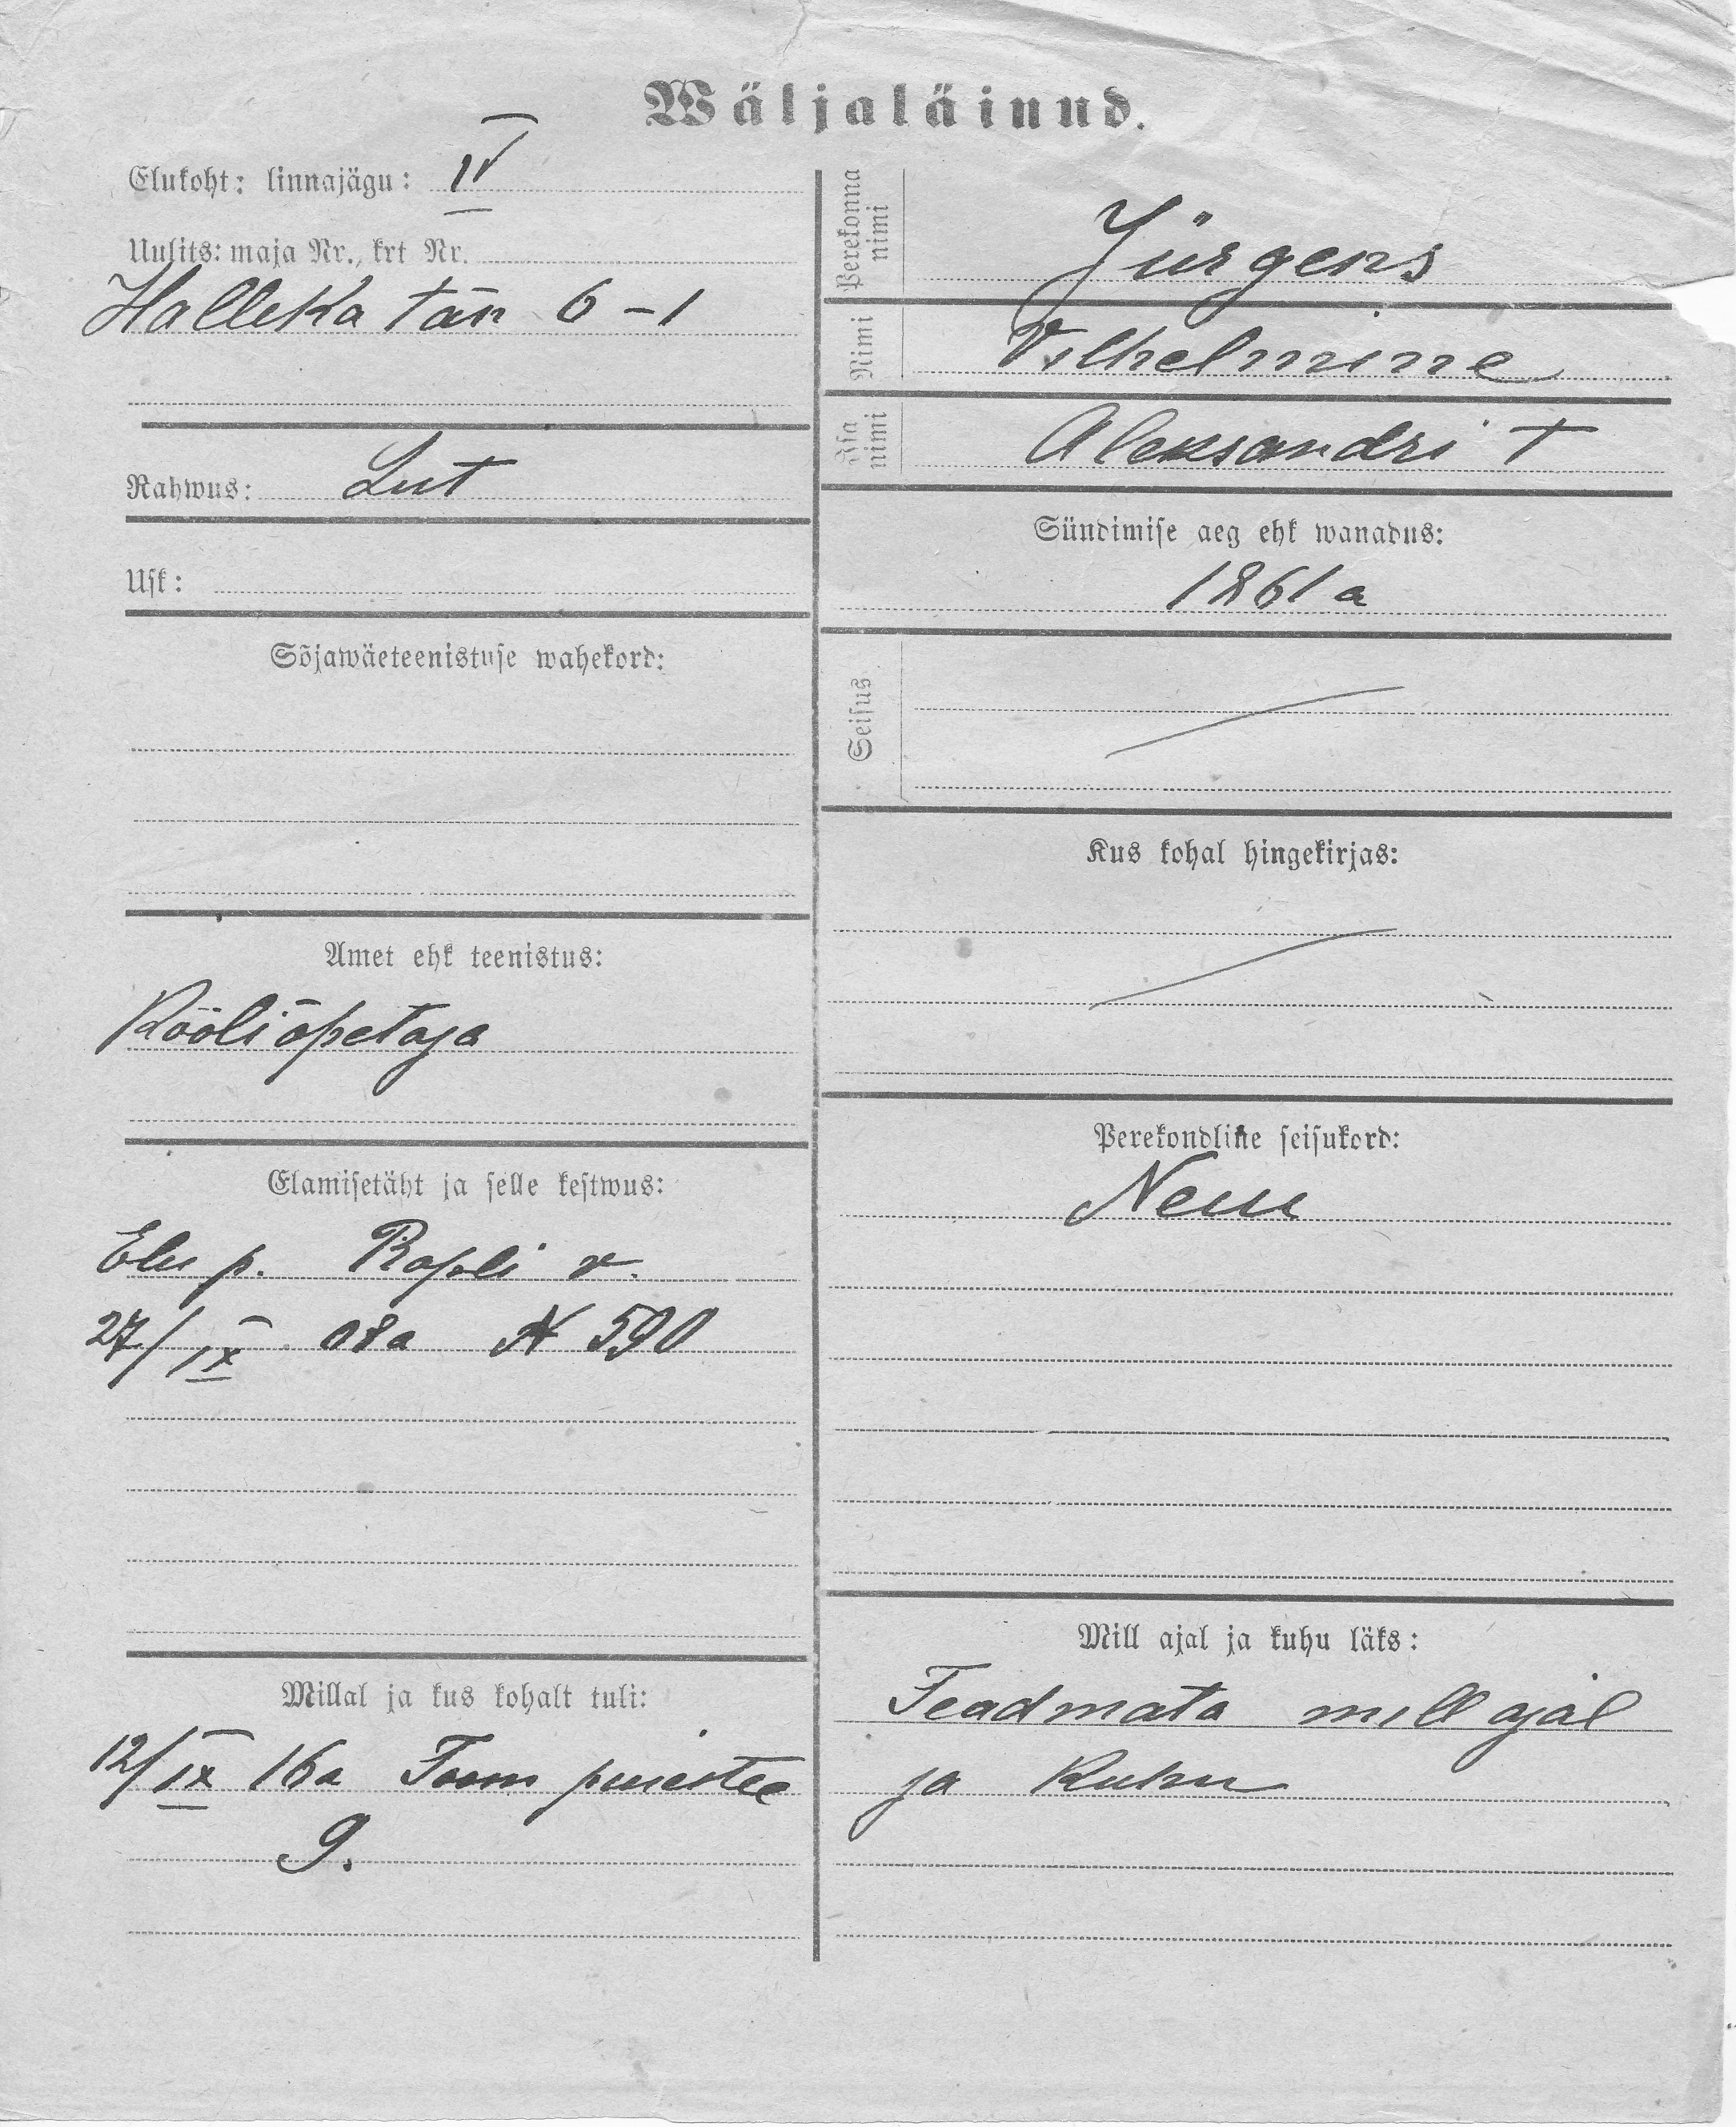 Wäljaläinud.
Elukoht: linnajägu: IV
Uulits: maja Nr., krt Nr.
Halleka tän 6-1
Rahwus: Lut
Usk:
Sõjawäeteenistuse wahekord:
Amet ehk teenistus:
Kööliõpetaja
Elamisetäht ja selle kestwus:
Elu p. Rapli v.
27/IX 08a N 590
Millal ja kus kohalt tuli:
12/IX 16a Toom puiestee
9.
Perekonna nimi
Jürgens
Nimi
Vilhelmine
Isa nimi
Aleksandri T
Sündimise aeg ehk wanadus:
1861 a
Seisus
Kus kohal hingekirjas:
Perekondline seisukord:
Neiu
Mill ajal ja kuhu läks:
Teadmata mill ajal
ja kuhu